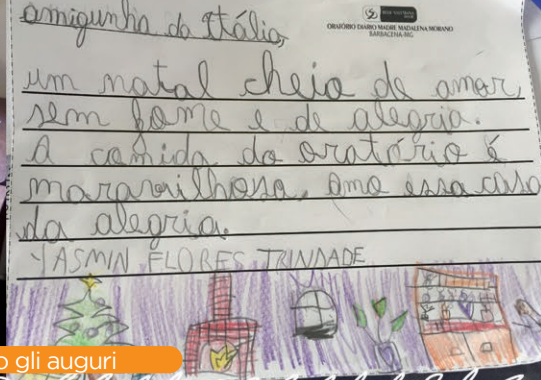 amiguinha da Itália,
ORATÓRIO DIÁRIO MADRE MADALENA MORANO
BARBACENA-MG
um natal cheio de amor,
sem fome e de alegria.
A comida do oratório é
maravilhosa, amo essa casa
da alegria.
YASMIN FLORES TRINDADE
o gli auguri